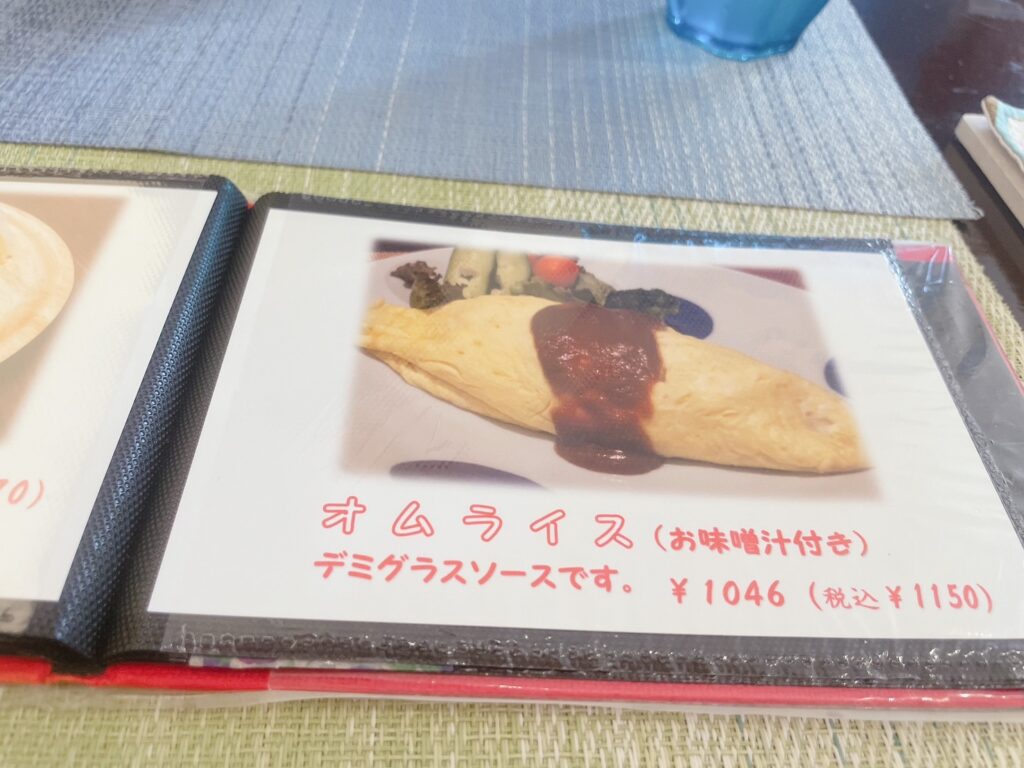 オムライス（お味噌汁付き）
デミグラスソースです。 ￥1046 （税込￥1150）